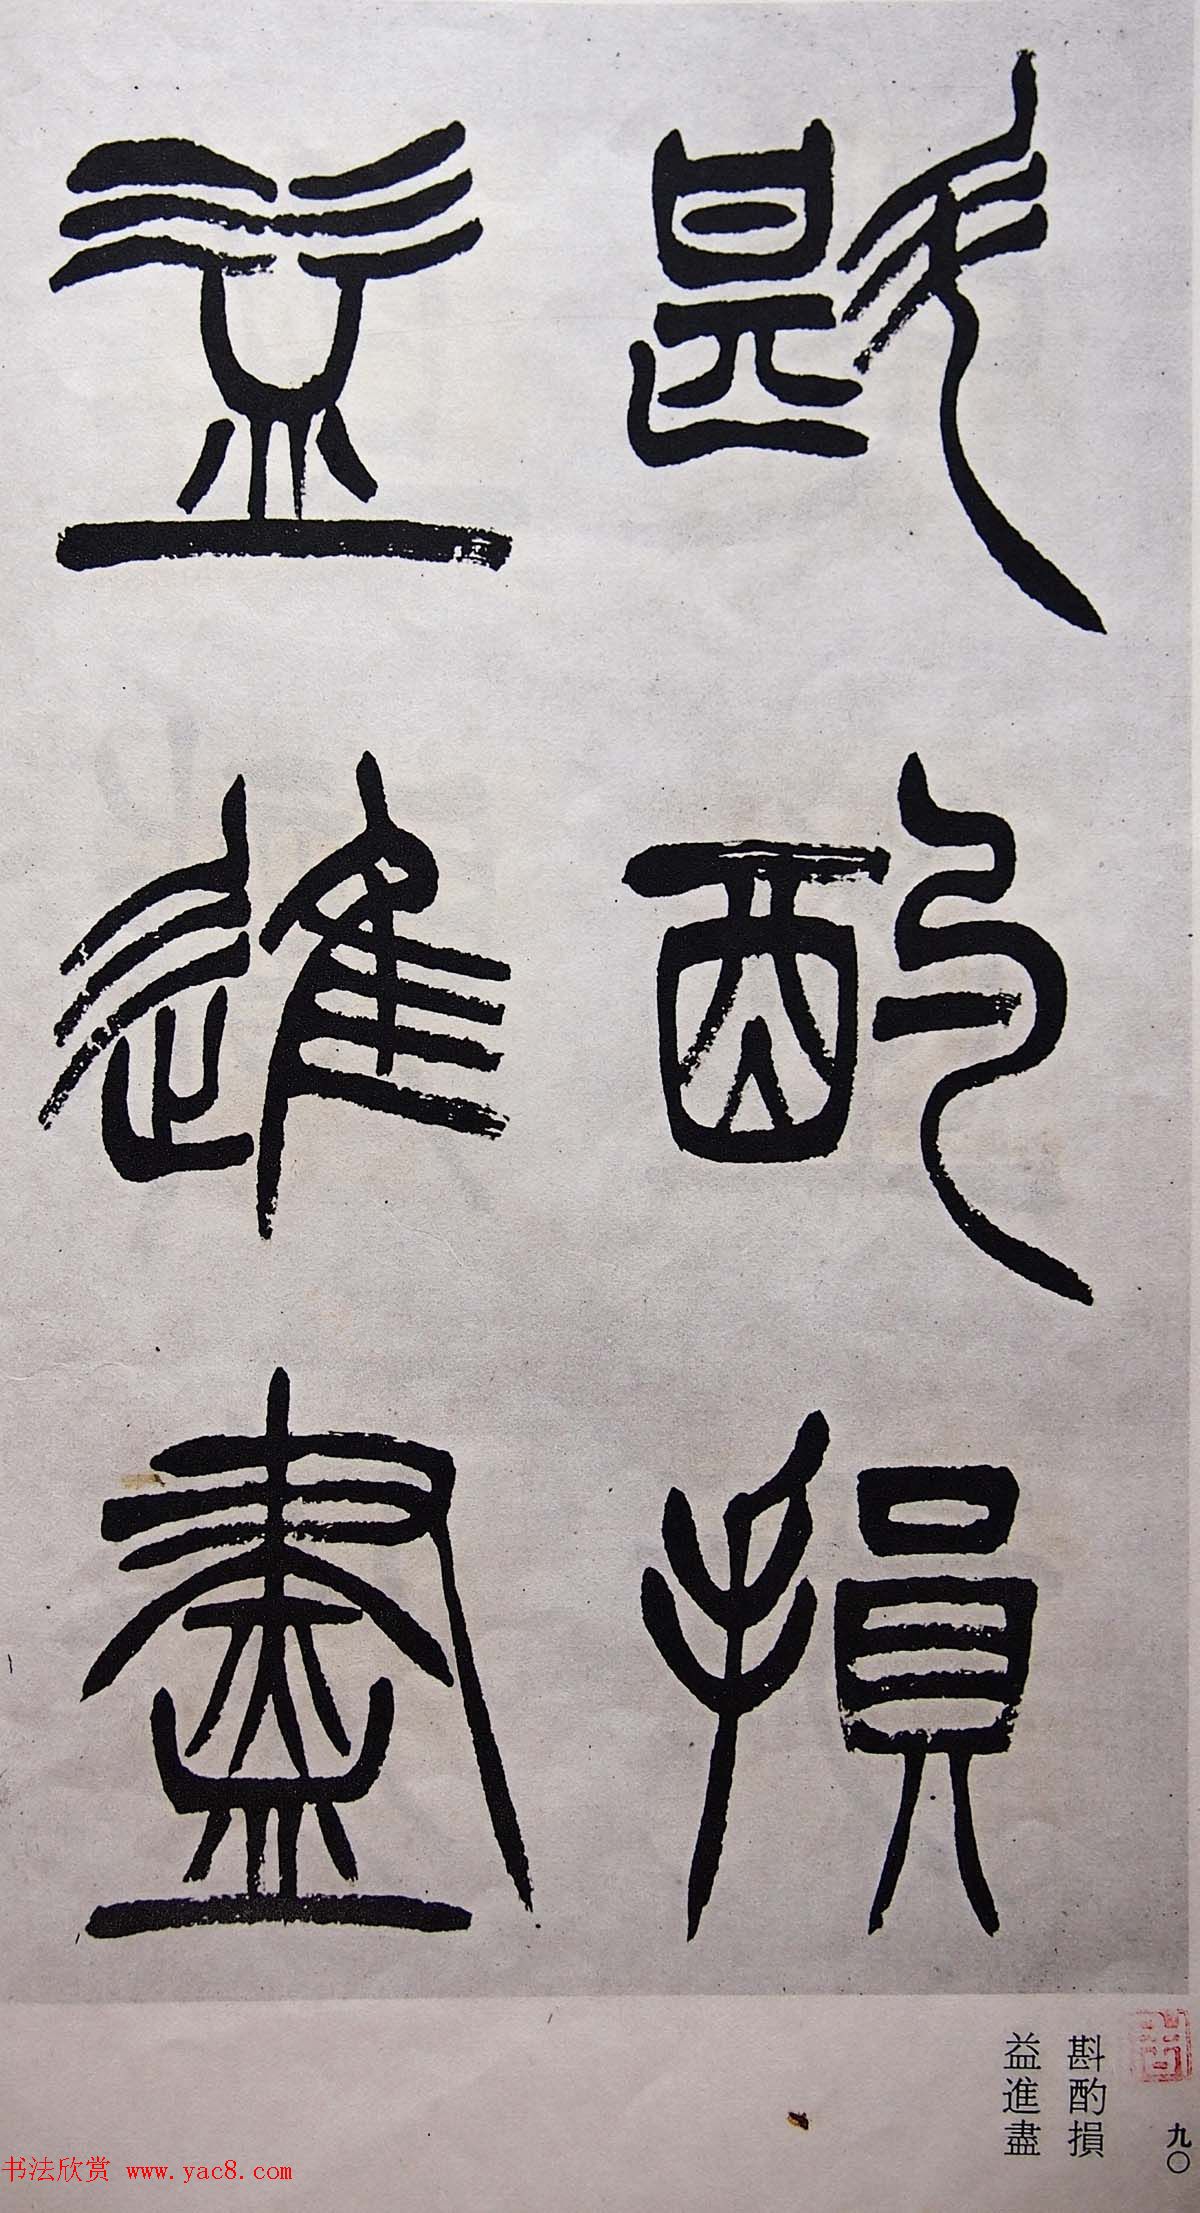 斟酌損
益進盡
斟酌損
益進盡
九〇
书法欣赏 www.yac8.com